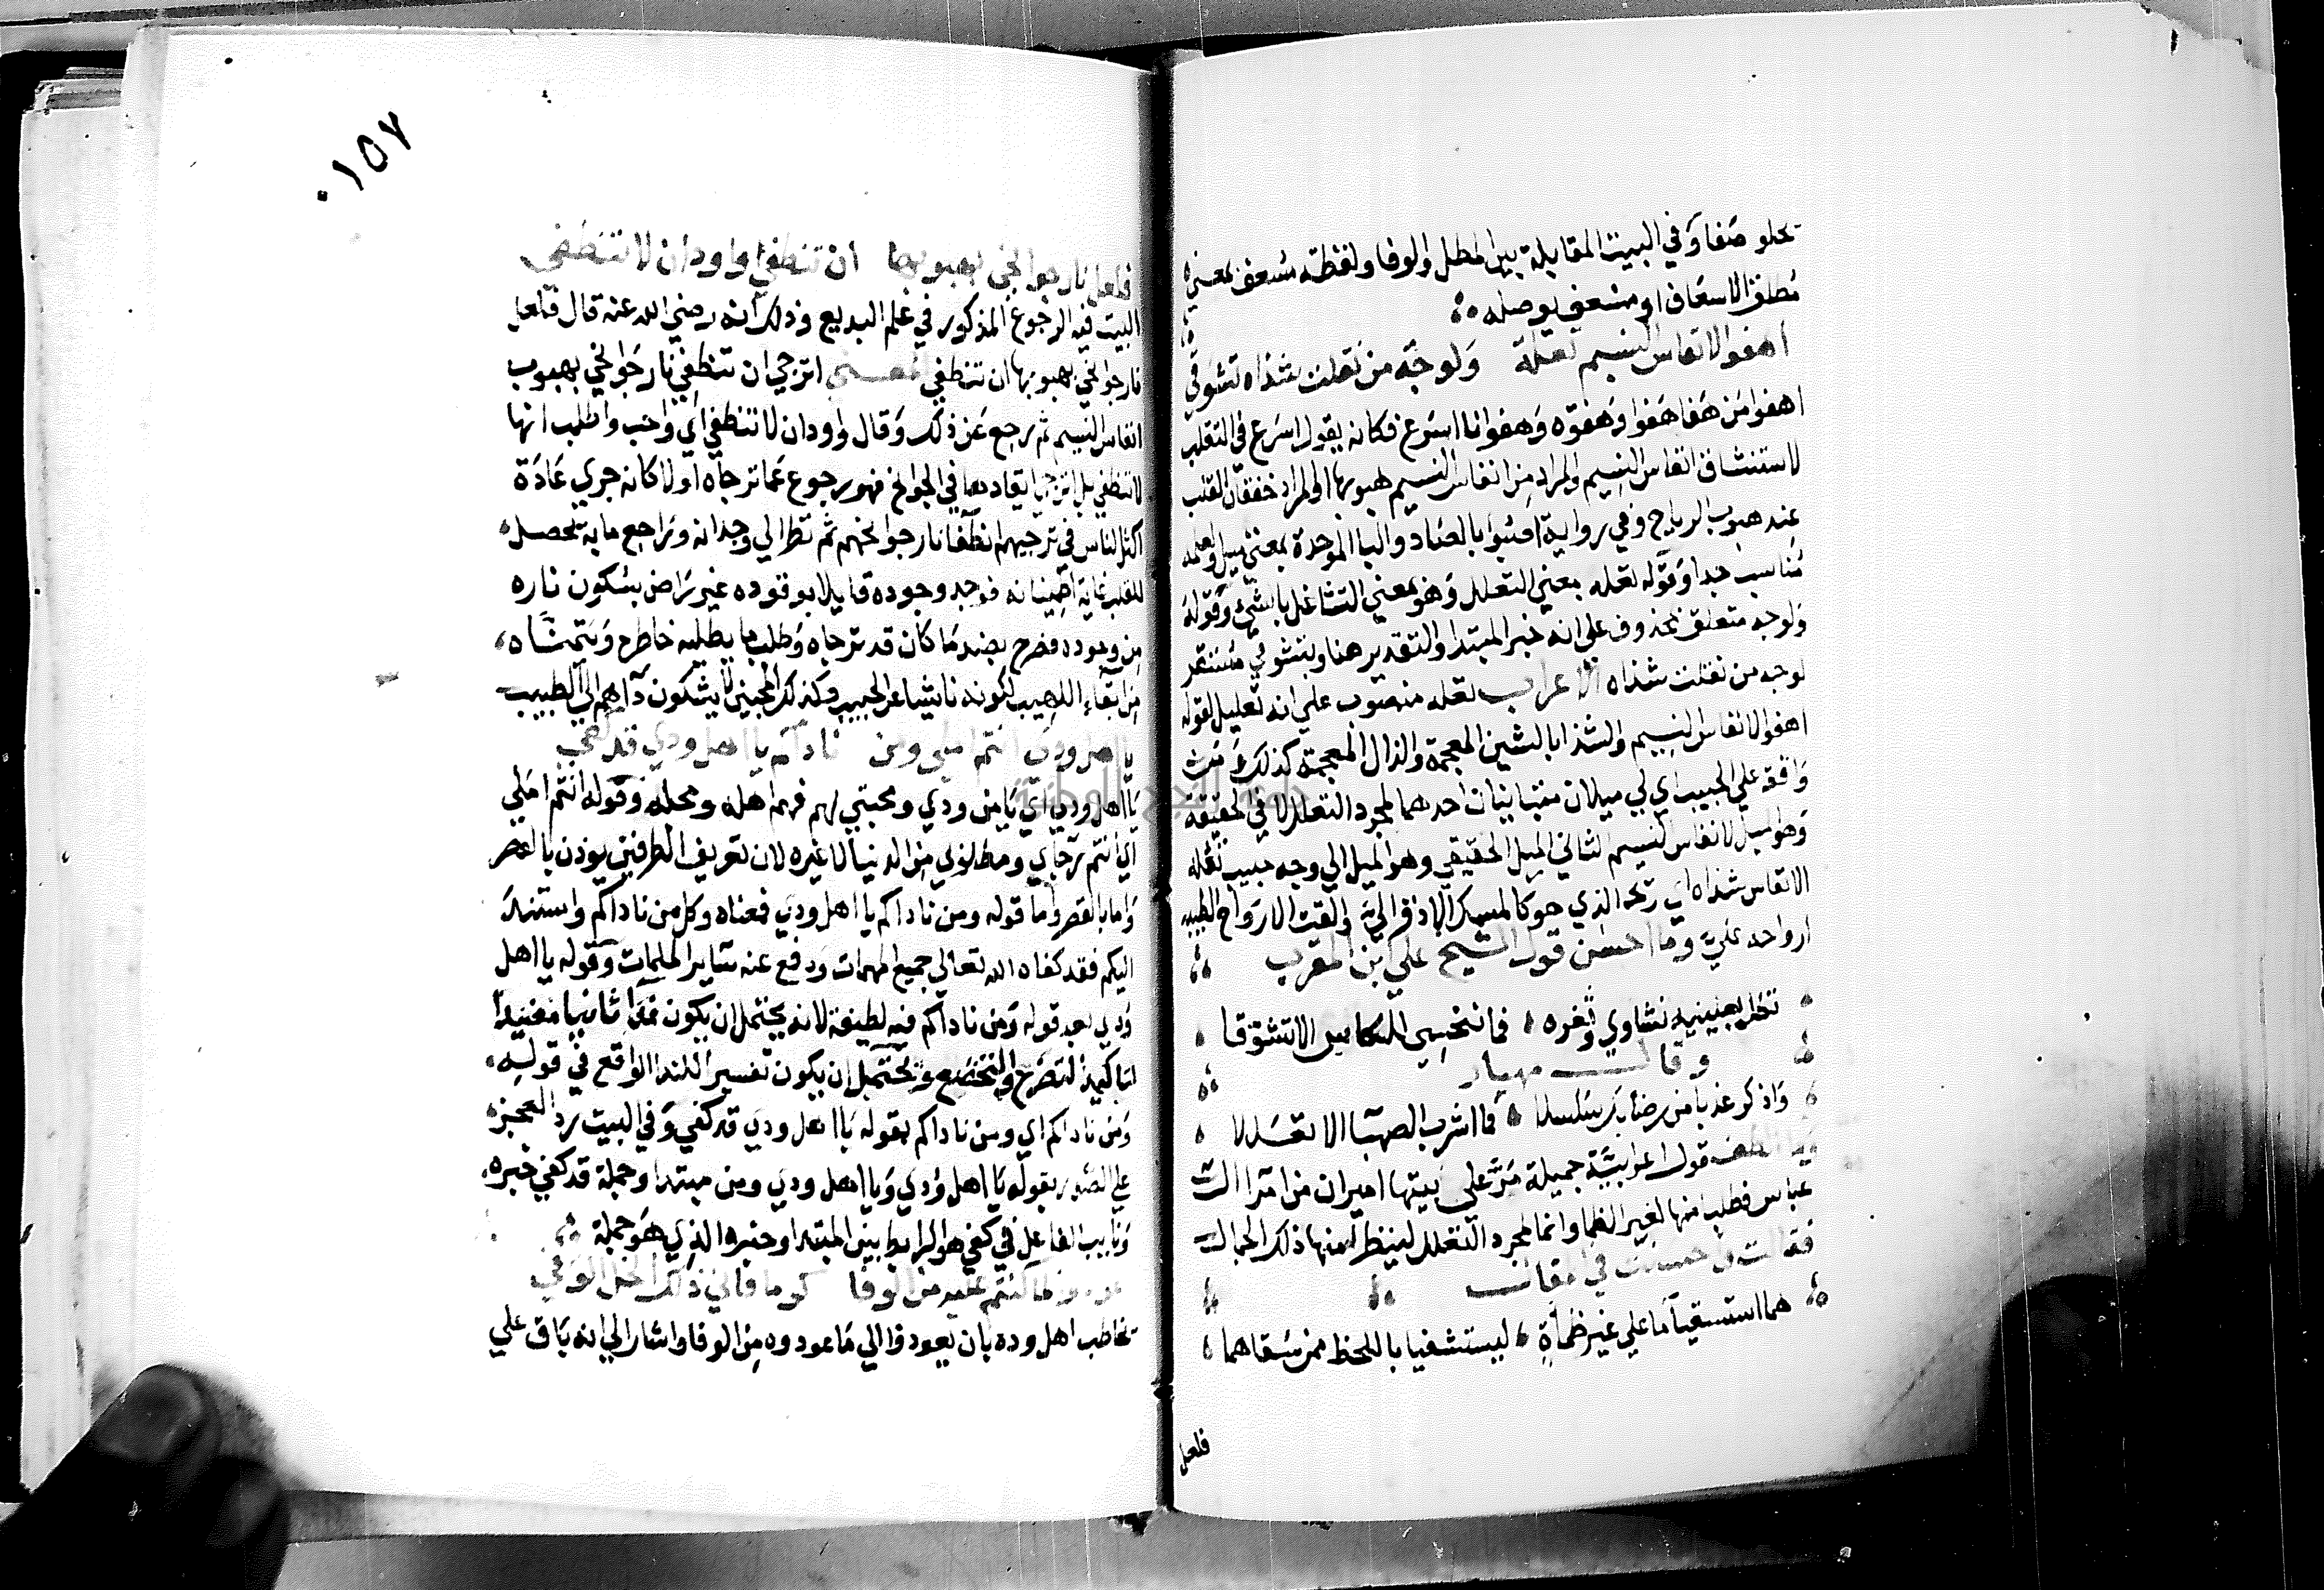 تخلو صفا وفي البيت المقابلة بين المطل والوفا ولفظة مسعف بمعني
مطلق الاسعاف او مسعف بوصله
اهفو لانفاس النسيم تعلة ولوجه من نقلت شذاه تشوفي
اهفوا من هفا هفوا وهفوة وهفوانا اسرع فكانه يقول اسرع في التقلب
لاستنشاق انفاس النسيم والمراد من انفاس النسيم هبوبها او المراد خفقان القلب
عند هبوب الرياح وفي رواية اصبوا بالصاد والبا الموحدة بمعني اميل
مناسب جدا وقوله تعله بمعني التعلل وهو بمعني التشاغل بالشئ وقوله
ولوجه متعلق بمحذوف علي انه خبر المبتدا والتقدير هنا وتشوفي مستقر
لوجه من نقلت شذاه الاعراب تعله منصوب علي انه تعليل لقوله
اهفوا لانفاس النسيم والشذا بالشين المعجمة والذال المعجمة كذلك
واقفة علي الحبيب اي لي ميلان متباينان احدهما لمجرد التعلل لا في الحقيقة
وهو الميل لانفاس النسيم الثاني الميل الحقيقي وهو الميل الي وجه حبيب نقلت
الانفاس شذاه اي ريحه الذي هو كالمسك الاذفر اليه والقت الارواح الطيبة
ارواحه علي وما احسن قول الشيخ علي ابن المقرب
تظل بعينيه نشاوي وثغره فما نحتسي الكاس الا تشوقا
وقال مهيار
واذكر عذبا من رضابك سلسلا فما اشرب الصهبا الا تعللا
وما الطف قول اعرابية جميلة مر علي بيتها اميران من امرا الـ
عباس فطلبا منها لغير الظما وانما لمجرد التعلل لينظرا منها ذلك الجمال
فقالت واحسنت في مقالـ
هما استسقيا ما علي غير ظمأة ليستشفيا باللحظ ممن سقاهما
فلعل
١٥٧
فلعل نار جوانحي بهبوبها ان تنطفي واود ان لا تنطفي
البيت فيه الرجوع المذكور في علم البديع وذلك انه رضي الله عنه قال فلعل
نار جوانحي بهبوبها ان تنطفي المعـني اترجي ان تنطفي نار جوانحي بهبوب
انفاس النسيم ثم رجع عن ذلك وقال واود ان لا تنطفي اي واحب واطلب انها
لا تنطفي بل اترجي ايقادها في الجوانح فهو رجوع عما ترجاه اولا كانه جري عادة
اكثر الناس في ترجيهم انطفا نار جوانحهم ثم نظر الي وجدانه وراجع ما به تحصل
للقلب غاية اطمينانه فوجد وجوده قايلا بوقوده غير راض بسكون ناره
من وجوده فصرح بضد ما كان قد ترجاه وطلب ما يطلبه خاطره ويتمناه
من ابقاء اللهيب لكونه ناشيا عن الحبيب وكذلك المحبين لا يشكون داهم الي الطبيب
يا اهل ودي انتم املي ومن ناداكم يا اهل ودي قد كفي
يا اهل ودي اي يا من ودي ومحبتي لهم فهم اهله ومحله وقوله انتم املي
اي انتم رجاي ومطلوبي من الدنيا لا غيره لان تعريف الطرفين يوذن بالحصر
واما بالقصر واما قوله ومن ناداكم يا اهل ودي فمعناه وكل من ناداكم واستند
اليكم فقد كفاه الله تعالي جميع المهمات ودفع عنه ساير الملمات وقوله يا اهل
ودي بعد قوله ومن ناداكم فيه لطيفة لانه يحتمل ان يكون ندا ثانيا مفيدا
لتاكيد التضرع والتخضع ويحتمل ان يكون تفسيرا للندا الواقع في قوله
ومن ناداكم اي ومن ناداكم بقوله يا اهل ودي قد كفي وفي البيت رد العجز
علي الصدر بقوله يا اهل ودي ويا اهل ودي ومن مبتدا وجملة قد كفي خبره
ونايب الفاعل في كفي هو الرابط بين المبتدا وخبره الذي هو جملة
عودوا لما كنتم عليه من الوفا كرما فاني ذلك الخل الوفي
تخاطب اهل وده بان يعودوا الي ما عودوه من الوفا واشار الي انه باق علي